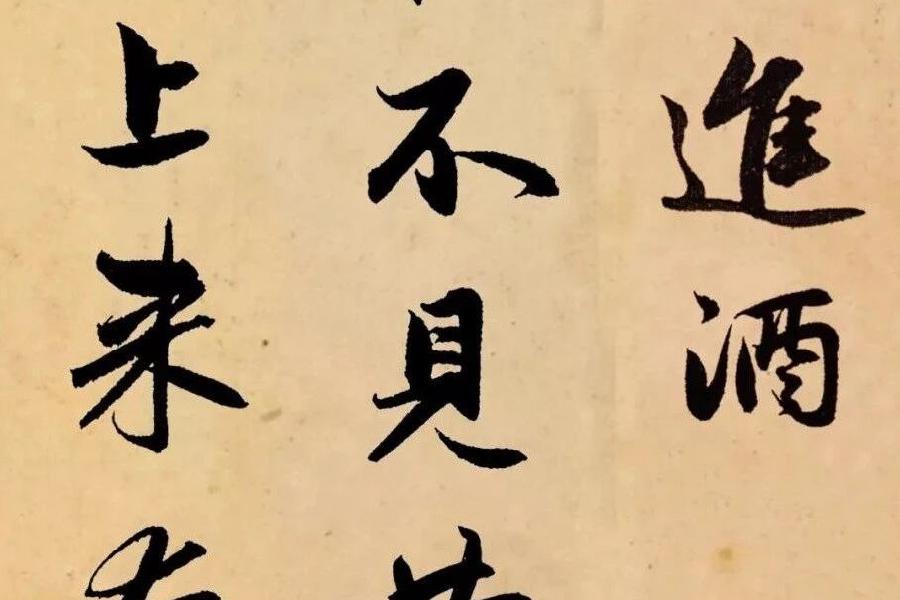 進酒
不見
上来